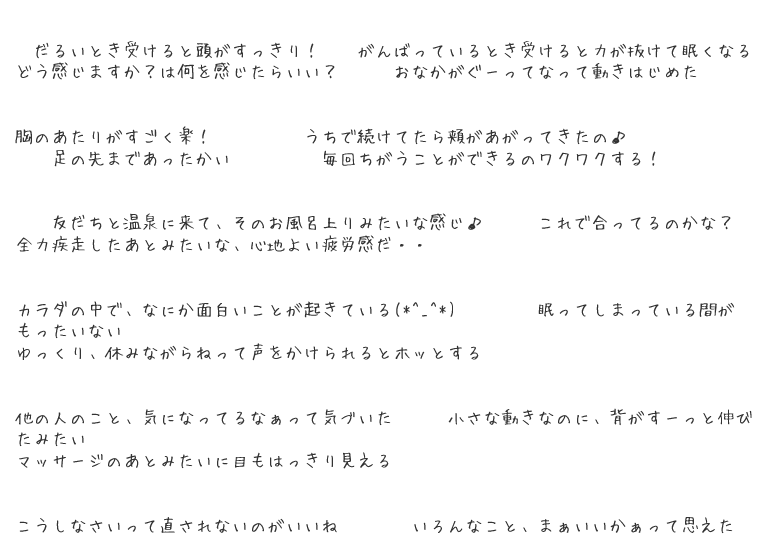 だるいとき受けると頭がすっきり！　　がんばっているとき受けると力が抜けて眠くなる
どう感じますか？は何を感じたらいい？　　　おなかがぐーってなって動きはじめた
胸のあたりがすごく楽！　　　　　うちで続けてたら頬があがってきたの♪
足の先まであったかい　　　　　毎回ちがうことができるのワクワクする！
友だちと温泉に来て、そのお風呂上りみたいな感じ♪　　　これで合ってるのかな？
全力疾走したあとみたいな、心地よい疲労感だ・・
カラダの中で、なにか面白いことが起きている(*^_^*)　　　　眠ってしまっている間が
もったいない
ゆっくり、休みながらねって声をかけられるとホッとする
他の人のこと、気になってるなぁって気づいた　　　小さな動きなのに、背がすーっと伸び
たみたい
マッサージのあとみたいに目もはっきり見える
こうしなさいって直されないのがいいね　　　　いろんなこと、まぁいいかぁって思えた